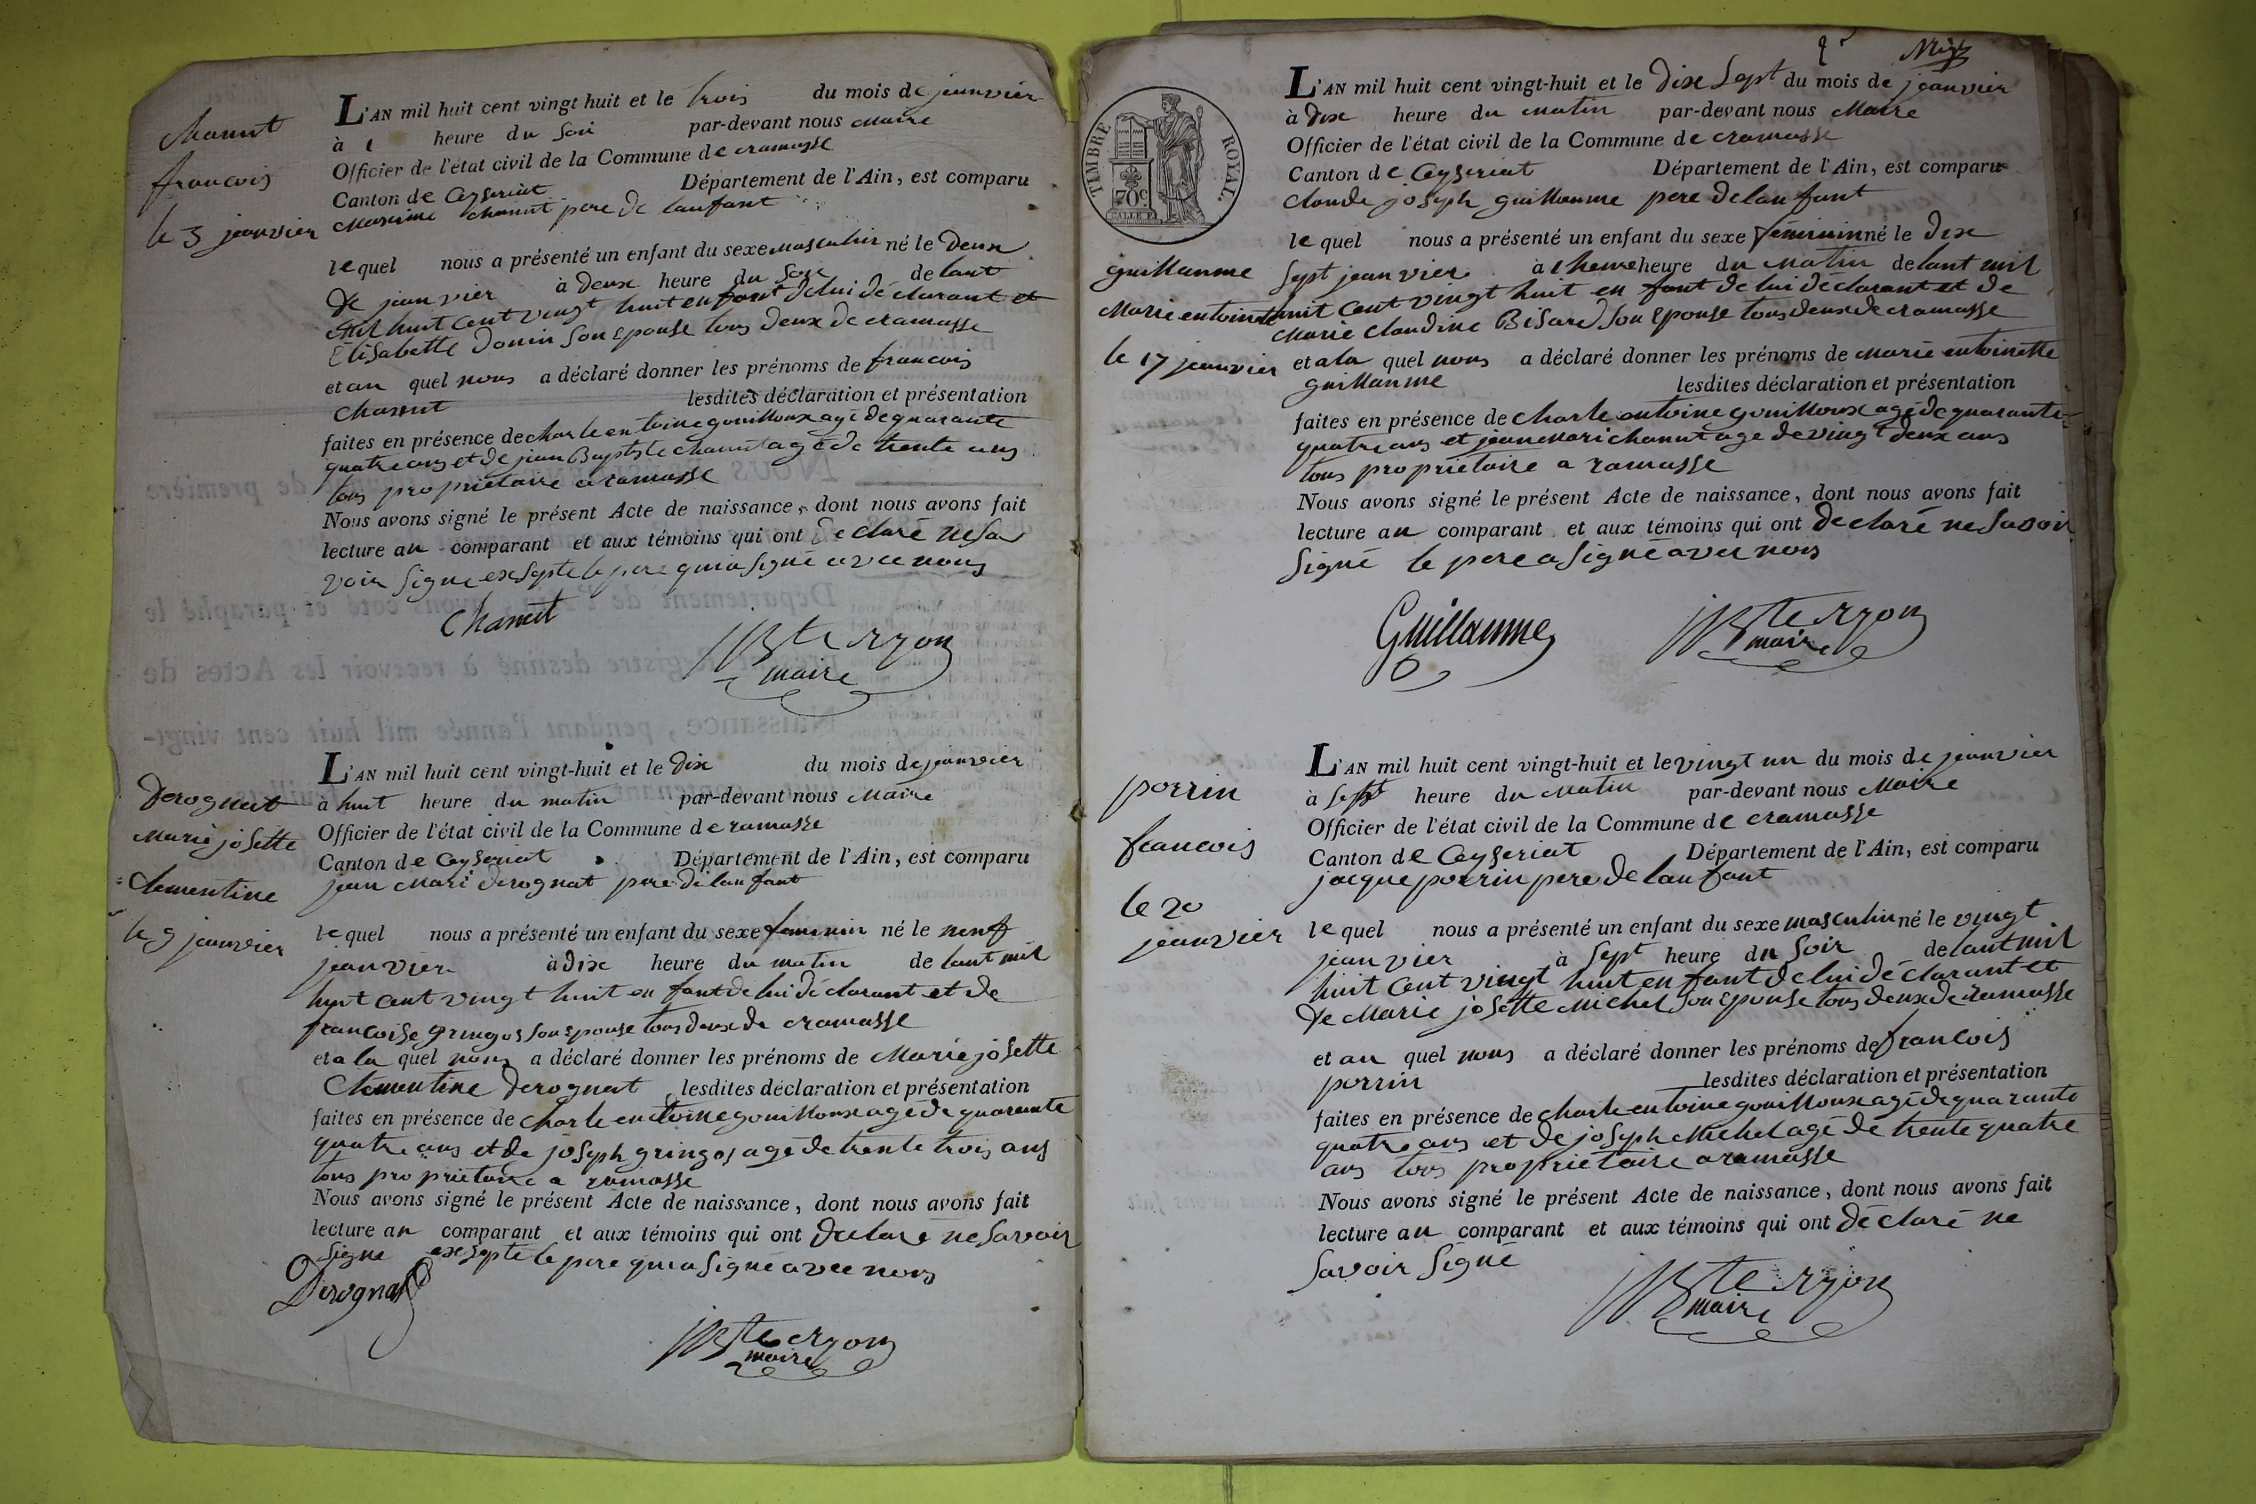 Chanut
francois
le 3 janvier
L'AN mil huit cent vingt huit et le trois du mois de jeanvier
à 1 heure du soir par-devant nous Maire
Officier de l'état civil de la Commune de cramasse
Canton de Ceyseriat Département de l'Ain, est comparu
Maxime chanut pere de lanfant
le quel nous a présenté un enfant du sexe masculin né le deux
de jeanvier à deux heure du soir de lant
mil huit cent vingt huit enfant de lui déclarant et
Elisabette Donin son epouse tous deux de cramasse
et au quel nous a déclaré donner les prénoms de francois
Chanut lesdites déclaration et présentation
faites en présence de charle entoine gouilloux agé de quarante
quatre ans et de jean Baptiste chanut agé de trente ans
tous proprietaire a ramasse
Nous avons signé le présent Acte de naissance, dont nous avons fait
lecture au comparant et aux témoins qui ont declaré ne sa
voir signe exsepte le pere qui a signé avec nous
Chanut
maire
Derognat
Marie josette
Clementine
le 9 jeanvier
L'AN mil huit cent vingt-huit et le dix du mois de jeanvier
à huit heure du matin par-devant nous Maire
Officier de l'état civil de la Commune de ramasse
Canton de Ceyseriat Département de l'Ain, est comparu
jean Mari derognat pere de lanfant
le quel nous a présenté un enfant du sexe feminin né le neuf
jeanvier à dix heure du matin de lant mil
huit cent vingt huit enfant de lui déclarant et de
francoise gringos son epouse tous deux de cramasse
et a la quel nous a déclaré donner les prénoms de Marie josette
Clementine derognat lesdites déclaration et présentation
faites en présence de charle entoine gouilloux agé de quarante
quatre ans et de joseph gringos agé de trente trois ans
tous proprietaire a ramasse
Nous avons signé le présent Acte de naissance, dont nous avons fait
lecture au comparant et aux témoins qui ont declaré ne savoir
signe exsepte le pere qui a signé avec nous
Derognat
maire
TIMBRE ROYAL.
70c
guillaume
Marie entoinette
le 17 jeanvier
L'AN mil huit cent vingt-huit et le dix sept du mois de jeanvier
à dix heure du matin par-devant nous Maire
Officier de l'état civil de la Commune de cramasse
Canton de Ceyseriat Département de l'Ain, est comparu
Claude joseph guillaume pere de lanfant
le quel nous a présenté un enfant du sexe féminin né le dix
sept jeanvier à 1 heure heure du matin de lant mil
huit cent vingt huit enfant de lui déclarant et de
Marie Claudine Bisard son epouse tous deux de cramasse
et a la quel nous a déclaré donner les prénoms de Marie entoinette
guillaume lesdites déclaration et présentation
faites en présence de charle entoine gouilloux agé de quarante
quatre ans et jean Mari chanut age de vingt deux ans
tous proprietaire a ramasse
Nous avons signé le présent Acte de naissance, dont nous avons fait
lecture au comparant et aux témoins qui ont declaré ne savoir
signé le pere a signé avec nous
Guillaume
maire
perrin
francois
le 20
jeanvier
L'AN mil huit cent vingt-huit et le vingt un du mois de jeanvier
à sept heure du matin par-devant nous Maire
Officier de l'état civil de la Commune de cramasse
Canton de Ceyseriat Département de l'Ain, est comparu
jacque perrin pere de lanfant
le quel nous a présenté un enfant du sexe masculin né le vingt
jeanvier à sept heure du soir de lant mil
huit cent vingt huit enfant de lui déclarant et
de Marie josette Michel son epouse tous deux de ramasse
et au quel nous a déclaré donner les prénoms de francois
perrin lesdites déclaration et présentation
faites en présence de charle entoine gouilloux agé de quarante
quatre ans et de joseph Michel agé de trente quatre
ans tous proprietaire a ramasse
Nous avons signé le présent Acte de naissance, dont nous avons fait
lecture au comparant et aux témoins qui ont déclaré ne
savoir signé
maire